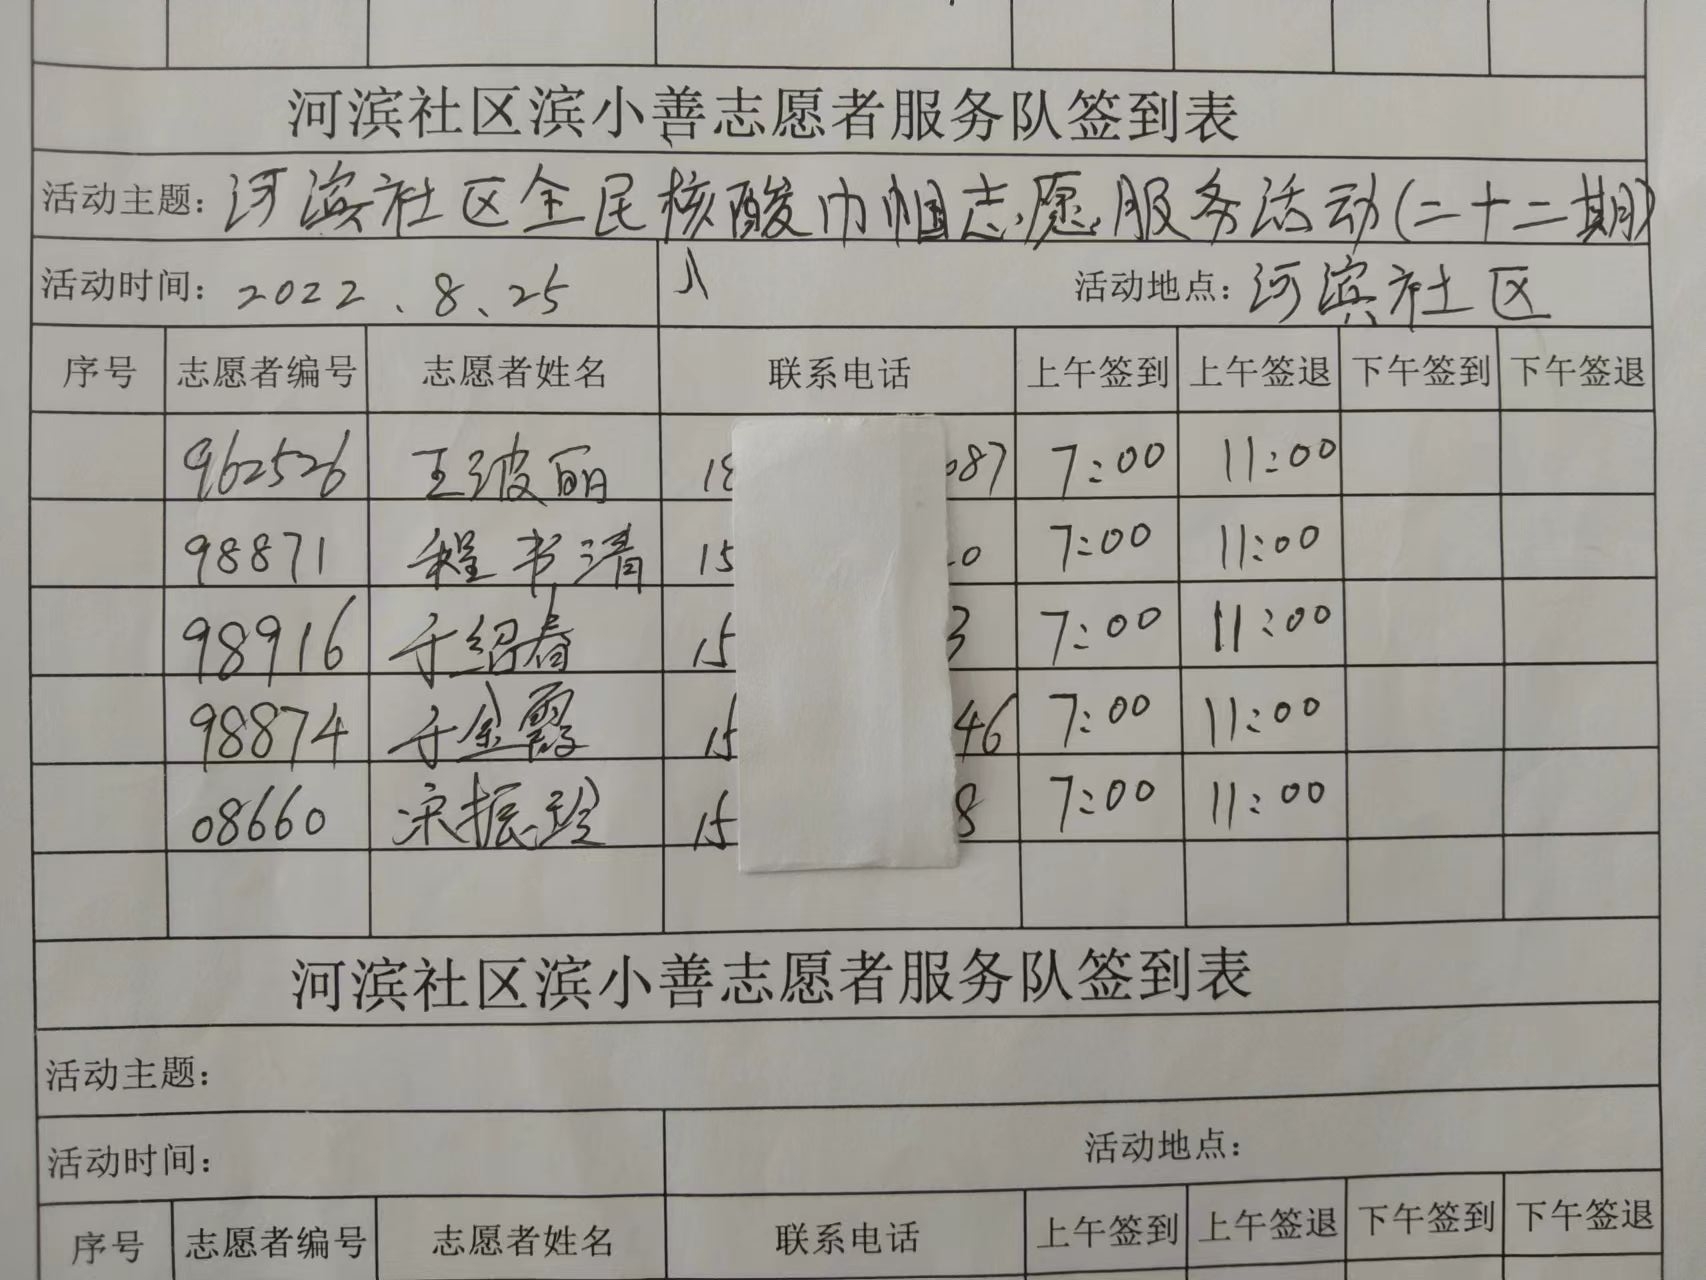 河滨社区滨小善志愿者服务队签到表
活动主题：河滨社区全民核酸巾帼志愿服务活动(二十二期)
活动时间：2022.8.25 活动地点：河滨社区
序号 志愿者编号 志愿者姓名 联系电话 上午签到 上午签退 下午签到 下午签退
962526 王波丽 18 087 7:00 11:00
98871 程书清 15 0 7:00 11:00
98916 于绍春 15 3 7:00 11:00
98874 于金霞 15 46 7:00 11:00
08660 宋振玲 15 8 7:00 11:00
河滨社区滨小善志愿者服务队签到表
活动主题：
活动时间： 活动地点：
序号 志愿者编号 志愿者姓名 联系电话 上午签到 上午签退 下午签到 下午签退